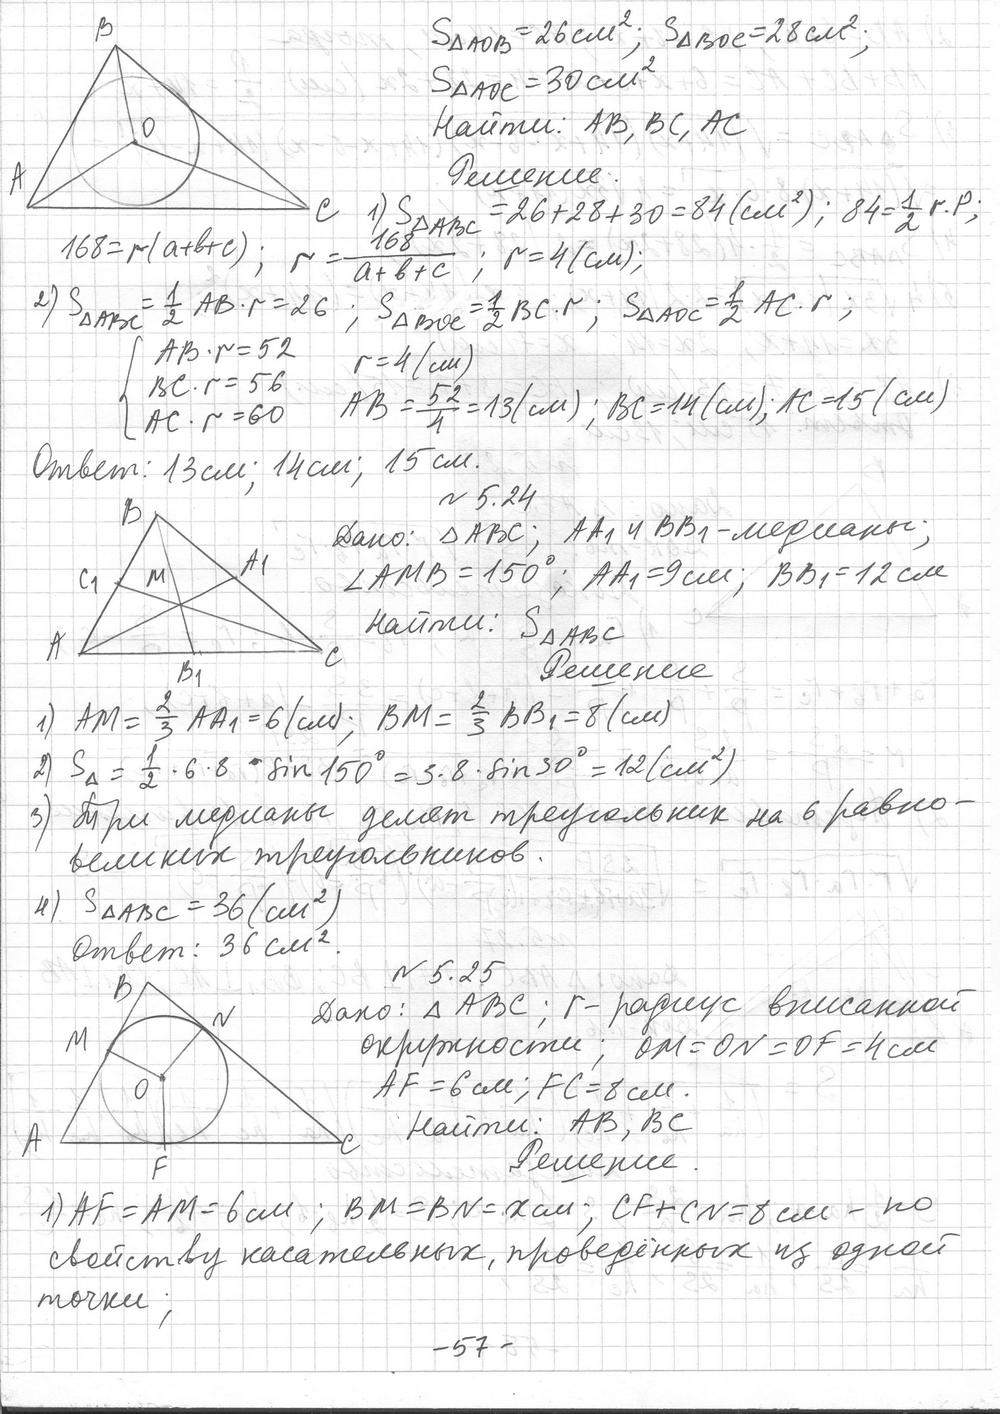 B
O
A
C
S△AOB = 26 см²; S△BOC = 28 см²;
S△AOC = 30 см²
Найти: AB, BC, AC
Решение.
1) S△ABC = 26+28+30 = 84 (см²); 84 = 1/2 r·P;
168 = r(a+b+c); r = 168/(a+b+c); r = 4 (см);
2) S△ABC = 1/2 AB·r = 26; S△BOC = 1/2 BC·r; S△AOC = 1/2 AC·r;
{ AB·r = 52
BC·r = 56
AC·r = 60
r = 4 (см)
AB = 52/4 = 13 (см); BC = 14 (см); AC = 15 (см)
Ответ: 13 см; 14 см; 15 см.
N 5.24
B
C₁
M
A₁
A
B₁
C
Дано: △ABC; AA₁ и BB₁ - медианы;
∠AMB = 150°; AA₁ = 9 см; BB₁ = 12 см
Найти: S△ABC
Решение
1) AM = 2/3 AA₁ = 6 (см); BM = 2/3 BB₁ = 8 (см)
2) S△ = 1/2 · 6 · 8 · sin 150° = 3·8·sin 30° = 12 (см²)
3) Три медианы делят треугольник на 6 равно-
великих треугольников.
4) S△ABC = 36 (см²)
Ответ: 36 см².
N 5.25
B
M
N
O
A
F
C
Дано: △ABC; r - радиус вписанной
окружности; OM = ON = OF = 4 см
AF = 6 см; FC = 8 см.
Найти: AB; BC
Решение.
1) AF = AM = 6 см; BM = BN = x см; CF + CN = 8 см - по
свойству касательных, проведённых из одной
точки;
-57-